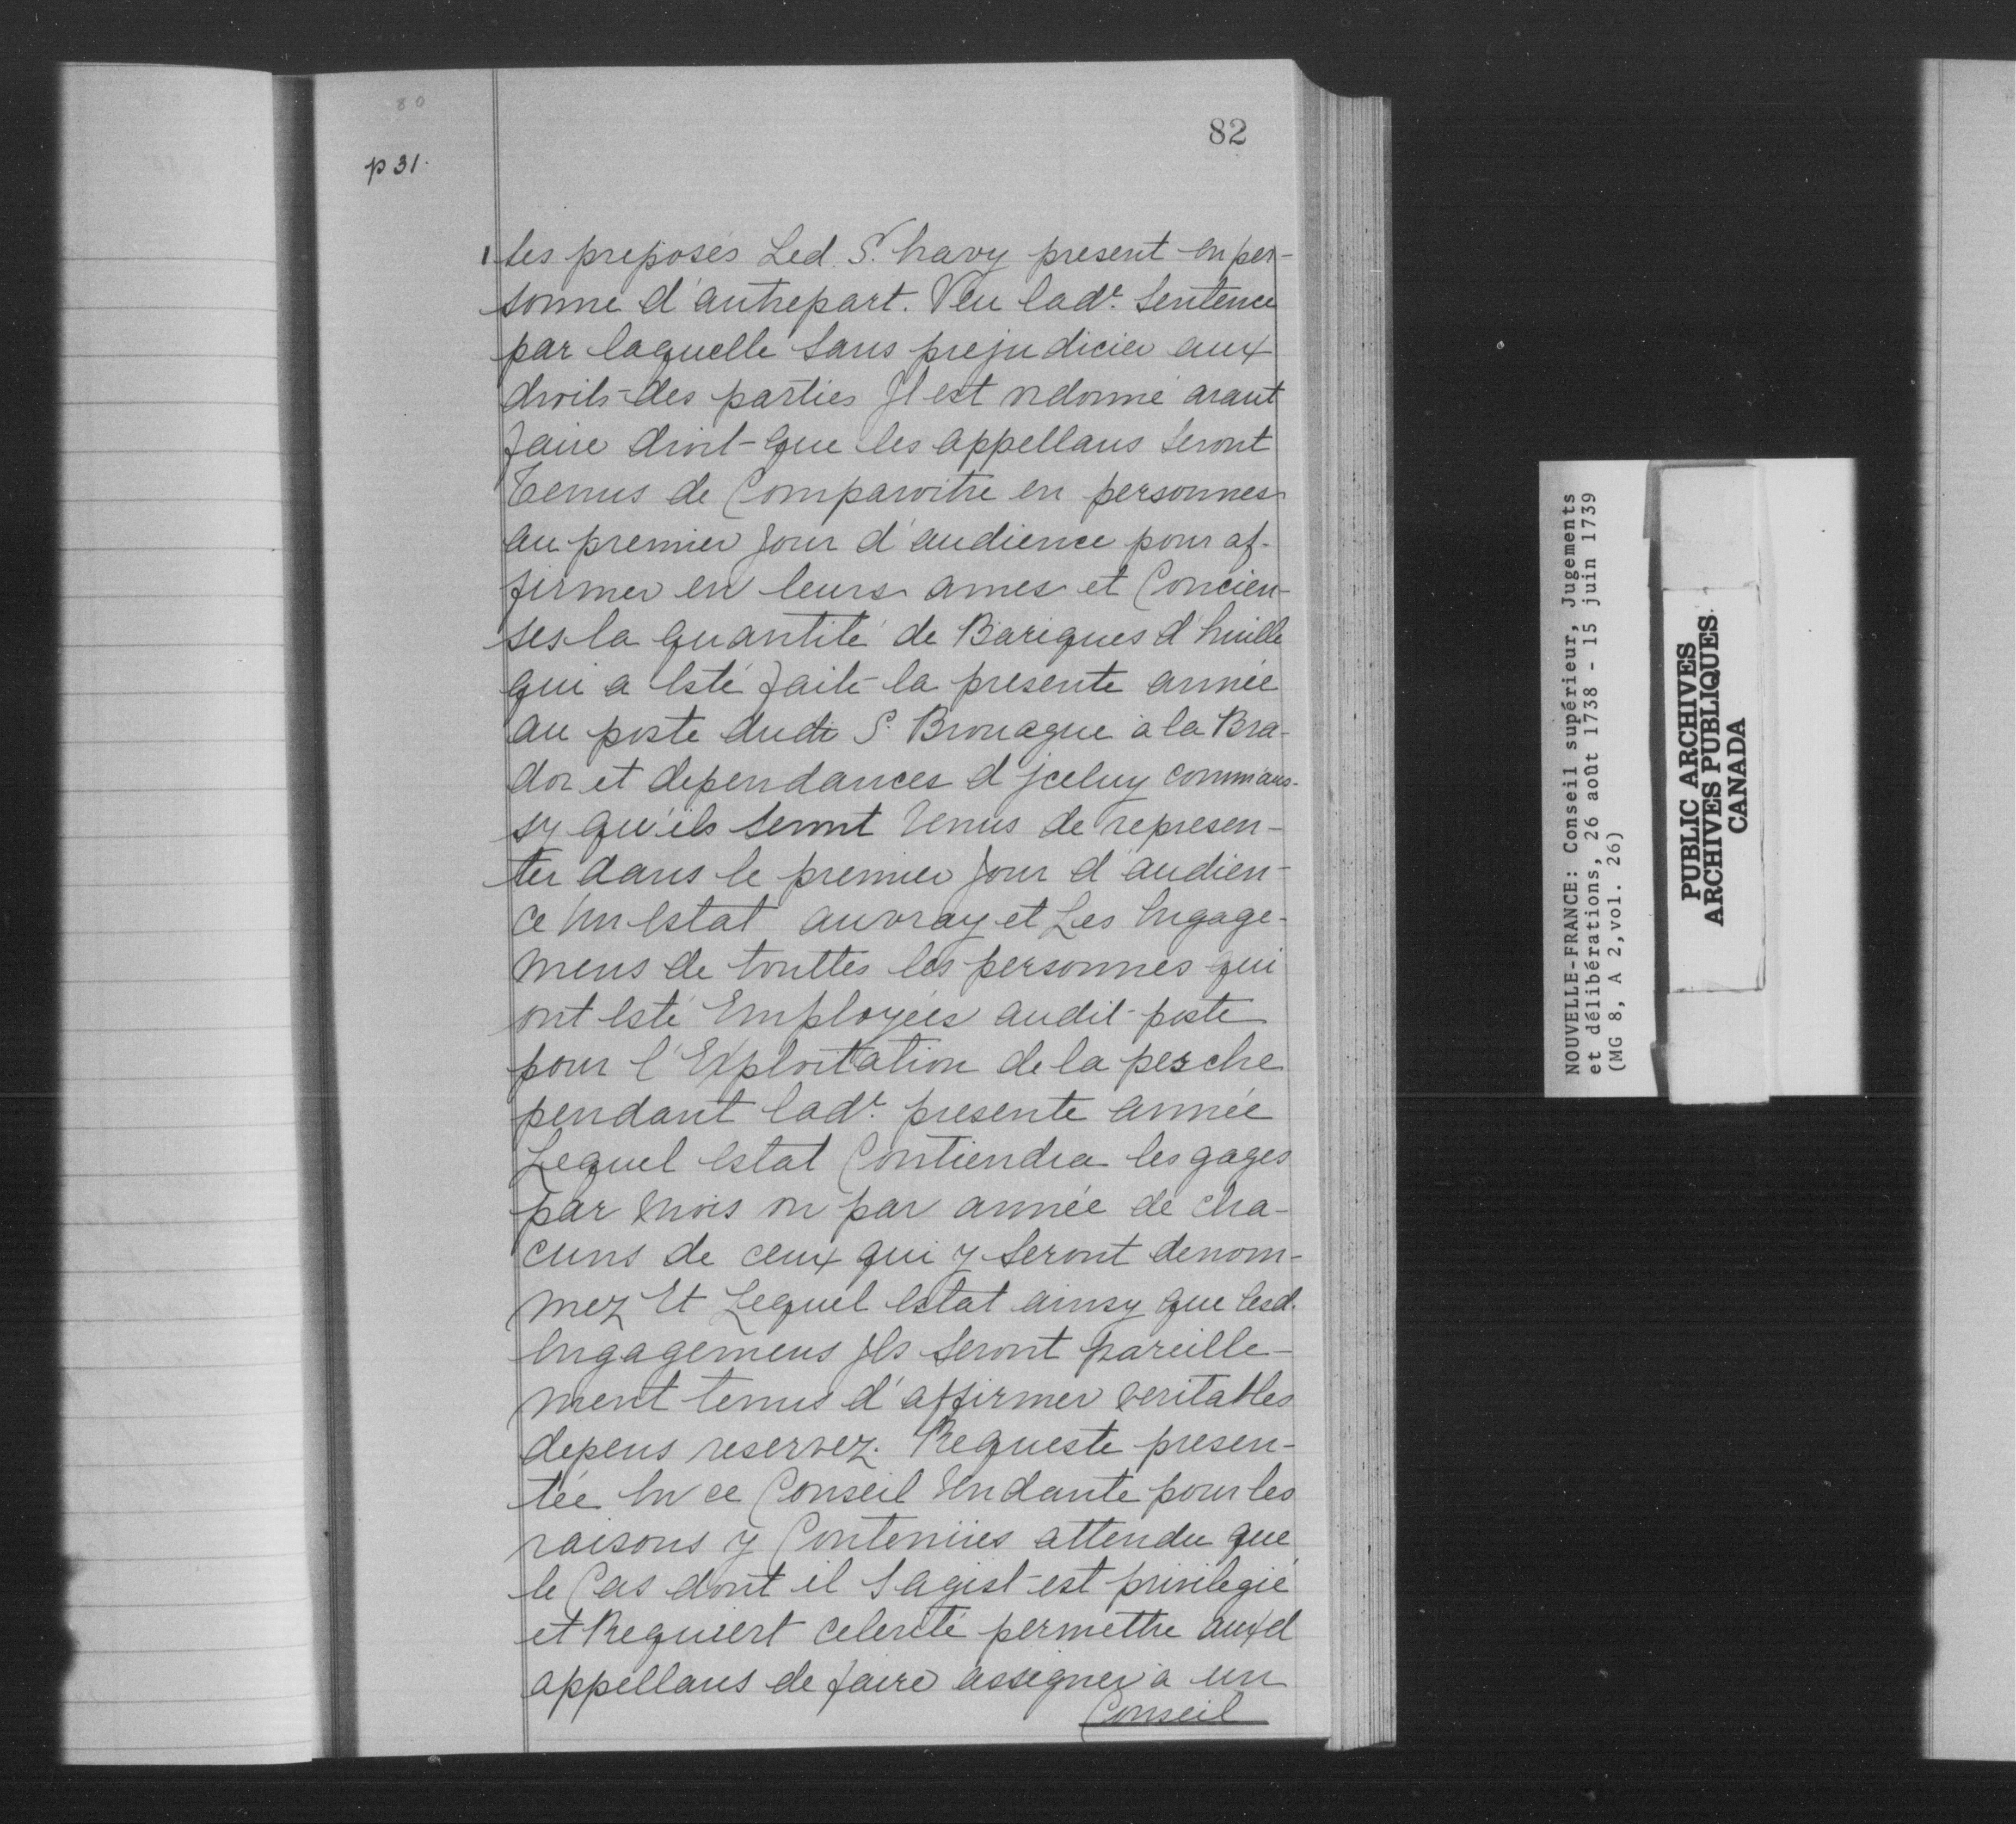 80
82
p 31.
les preposés Led. Sr. havy present en per-
sonne d'autrepart. Veu ladt. Sentence
par laquelle sans prejudicier aux
droits des parties Jl est ordonné avant
faire droit que les appellans seront
Tenus de Comparoitre en personnes
au premier Jour d'audience pour af-
firmer en leurs ames et Concien-
ses la quantité de Bariques d'huille
qui a Esté faite la presente année
au poste dudt S. Brouague a la Bra-
dor et dependances d'Jceluy comm'aus-
sy qu'ils seront Tenus de represen-
ter dans le premier Jour d'audien-
ce Un Estat au vray et Les Engage-
mens de touttes les personnes qui
ont Esté Employées audit poste
pour l'Exploitation de la pesche
pendant ladt. presente année
Lequel Estat Contiendra les gages
par Mois ou par année de cha-
cuns de ceux qui y seront denom-
mez Et Lequel Estat ainsy que lesd.
Engagemens Jls seront pareille-
ment tenus d'affirmer veritables
depens reservez. Requeste presen-
tée En ce Conseil Tendante pour les
raisons y Contenües attendu que
le Cas dont il S'agist est privilegié
et Requiert celerité permettre auxd
appellans de faire assigner a un
Conseil
NOUVELLE-FRANCE: Conseil supérieur, Jugements
et délibérations, 26 août 1738 - 15 juin 1739
(MG 8, A 2,vol. 26)
PUBLIC ARCHIVES
ARCHIVES PUBLIQUES
CANADA